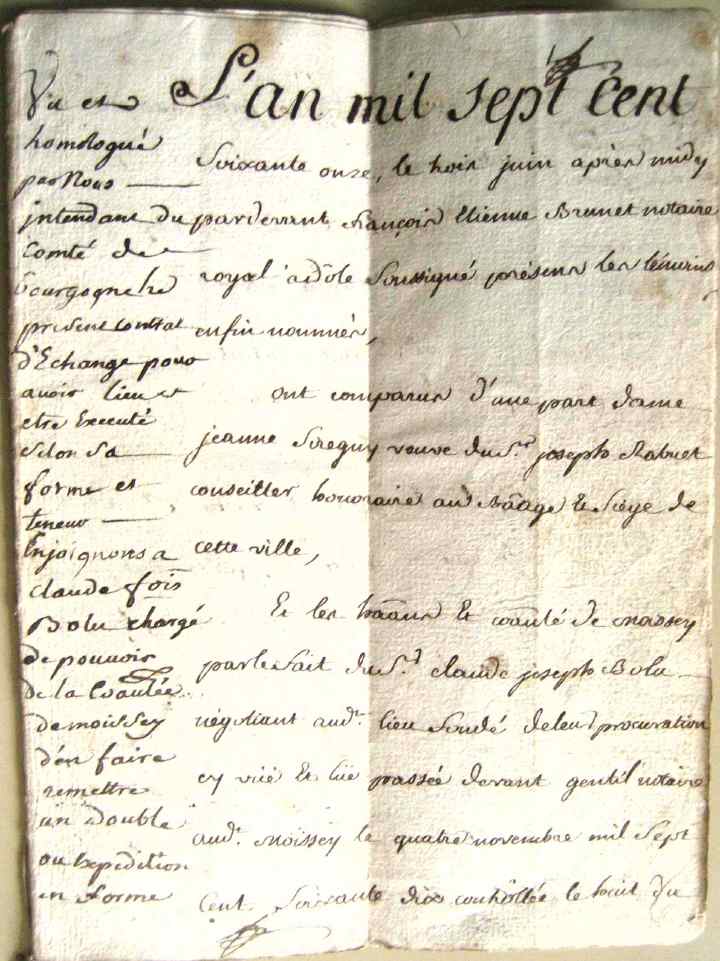 L'an mil sept cent
Soixante onze, le trois juin après midy
pardevant françois Etienne Brunet notaire
royal a dole Soussigné présens les témoins
enfin nommés,
ont comparus d'une part dame
jeanne veuve du Sr. joseph
conseiller honoraire au Bâage et Siége de
cette ville,
Et les et coâuté de moissey
par le fait du Sr. claude joseph Bolu
négotiant audt. lieu fondé de leur procuration
cy vüe et lüe passée devant gentil notaire
audt. moissey le quatre novembre mil Sept
Cent Soixante dix controllée le huit du
Vu et
homologué
par Nous
jntendant du
Comté de
bourgogne le
present contrat
d'Echange pour
avoir lieu et
etre Executé
selon sa
forme et
teneur
Enjoignons a
claude fois
Bolu chargé
de pouvoir
de la Coautée
de moissey
d'en faire
remettre
un double
ou Expedition
en forme